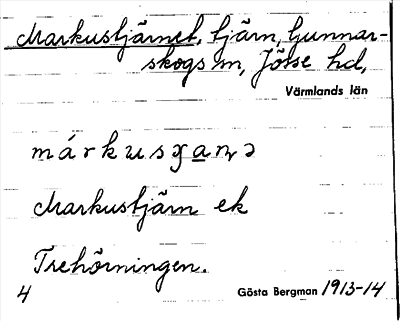 Markustjärnet, tjärn, Gunnar-
skogs sn, Jösse hd,
Värmlands län
márkusɣa̱ṇə
Markustjärn ek
Trehörningen.
4 Gösta Bergman 1913-14